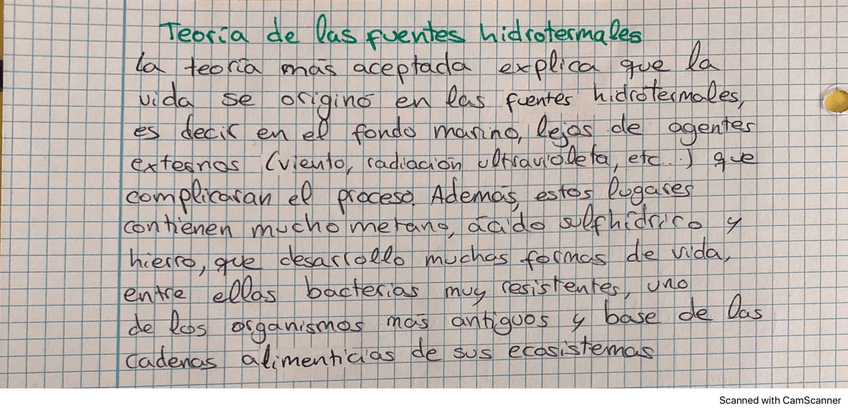 Teoría de las fuentes hidrotermales
La teoría más aceptada explica que la
vida se originó en las fuentes hidrotermales,
es decir en el fondo marino, lejos de agentes
externos (viento, radiación ultravioleta, etc...) que
complicaran el proceso. Además, estos lugares
contienen mucho metano, ácido sulfhídrico y
hierro, que desarrollo muchas formas de vida,
entre ellas bacterias muy resistentes, uno
de los organismos más antiguos y base de las
cadenas alimenticias de sus ecosistemas
Scanned with CamScanner